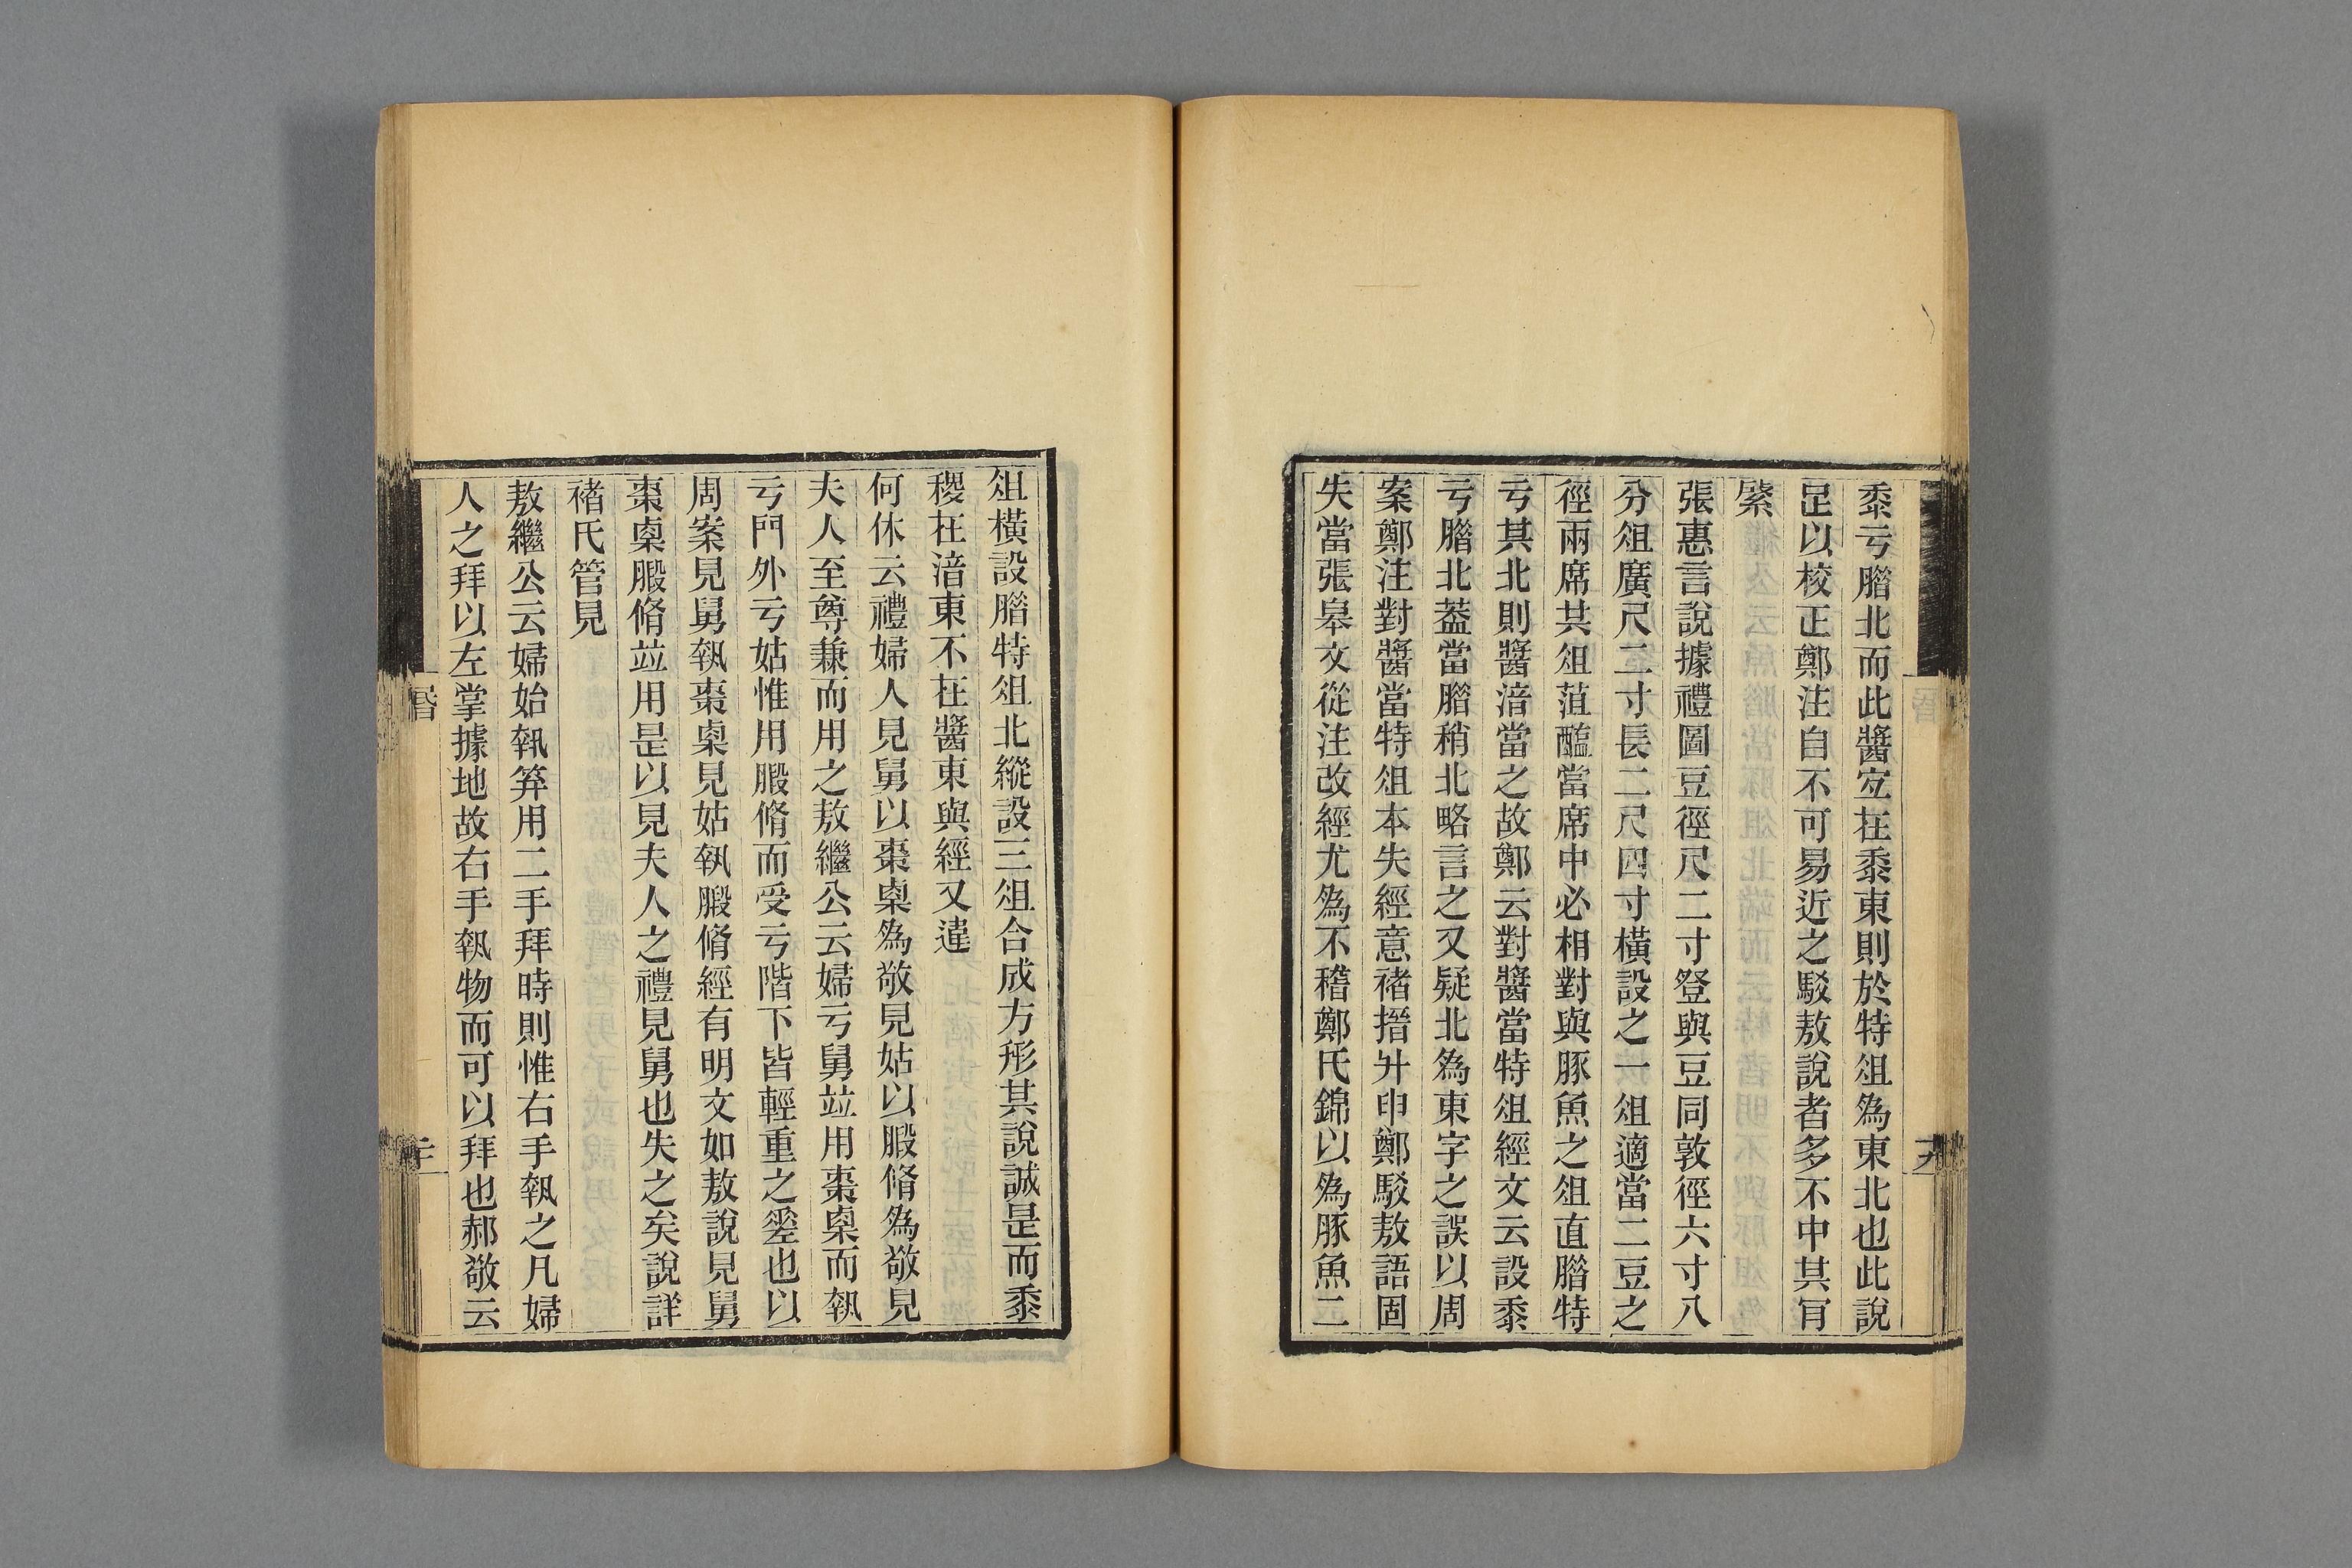 黍亏腊北而此醬㝎在黍東則於特俎為東北也此說
足以校正鄭注自不可易近之駁敖說者多不中其肎
綮
張惠言說據禮圖豆徑尺二寸登與豆同敦徑六寸八
分俎廣尺二寸長二尺四寸橫設之一俎適當二豆之
徑兩席共俎菹醢當席中必相對與豚魚之俎直腊特
亏其北則醬湆當之故鄭云對醬當特俎經文云設黍
亏腊北葢當腊稍北略言之又疑北為東字之誤以周
案鄭注對醬當特俎本失經意褚搢升申鄭駁敖語固
失當張皋文從注改經尤為不稽鄭氏錦以為豚魚二
十九
俎橫設腊特俎北縱設三俎合成方形其說誠是而黍
稷在湆東不在醬東與經又違
何休云禮婦人見舅以棗㮚為敬見姑以腶脩為敬見
夫人至尊兼而用之敖繼公云婦亏舅竝用棗㮚而執
亏門外亏姑惟用腶脩而受亏階下皆輕重之差也以
周案見舅執棗㮚見姑執腶脩經有明文如敖說見舅
棗㮚腶脩竝用是以見夫人之禮見舅也失之矣說詳
褚氏管見
敖繼公云婦始執笲用二手拜時則惟右手執之凡婦
人之拜以左掌據地故右手執物而可以拜也郝敬云
昬